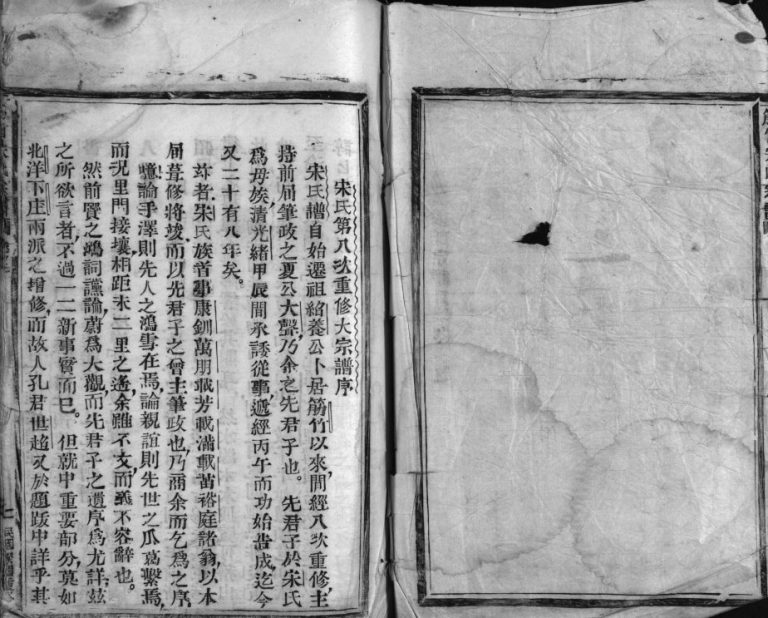 宋氏第八次重修大宗譜序
宋氏譜自始遷祖紹養公卜居筋竹以來,間經八次重修,主
持前屆筆政之夏公大聲,乃余之先君子也。先君子於宋氏
爲母族,清光緒甲辰間承諉從事,遞經丙午而功始告成,迄今
又二十有八年矣。
玆者宋氏族首事康釧萬朋戢芳載滿載苗裕庭諸翁,以本
屆葺修將竣,而以先君子之曾主筆政也,乃商余而乞爲之序
噫,論手澤則先人之鴻雪在焉,論親誼則先世之瓜葛繫焉,
而況里門接壤,相距末二里之遙,余雖不文,而義不容辭也。
然前賢之鴻詞讜論,蔚爲大觀,而先君子之遺序爲尤詳,玆
之所欲言者,不過一二新事實而已。但就中重要部分,莫如
北洋下庄兩派之增修,而故人孔君世趨又於題跋中詳乎其